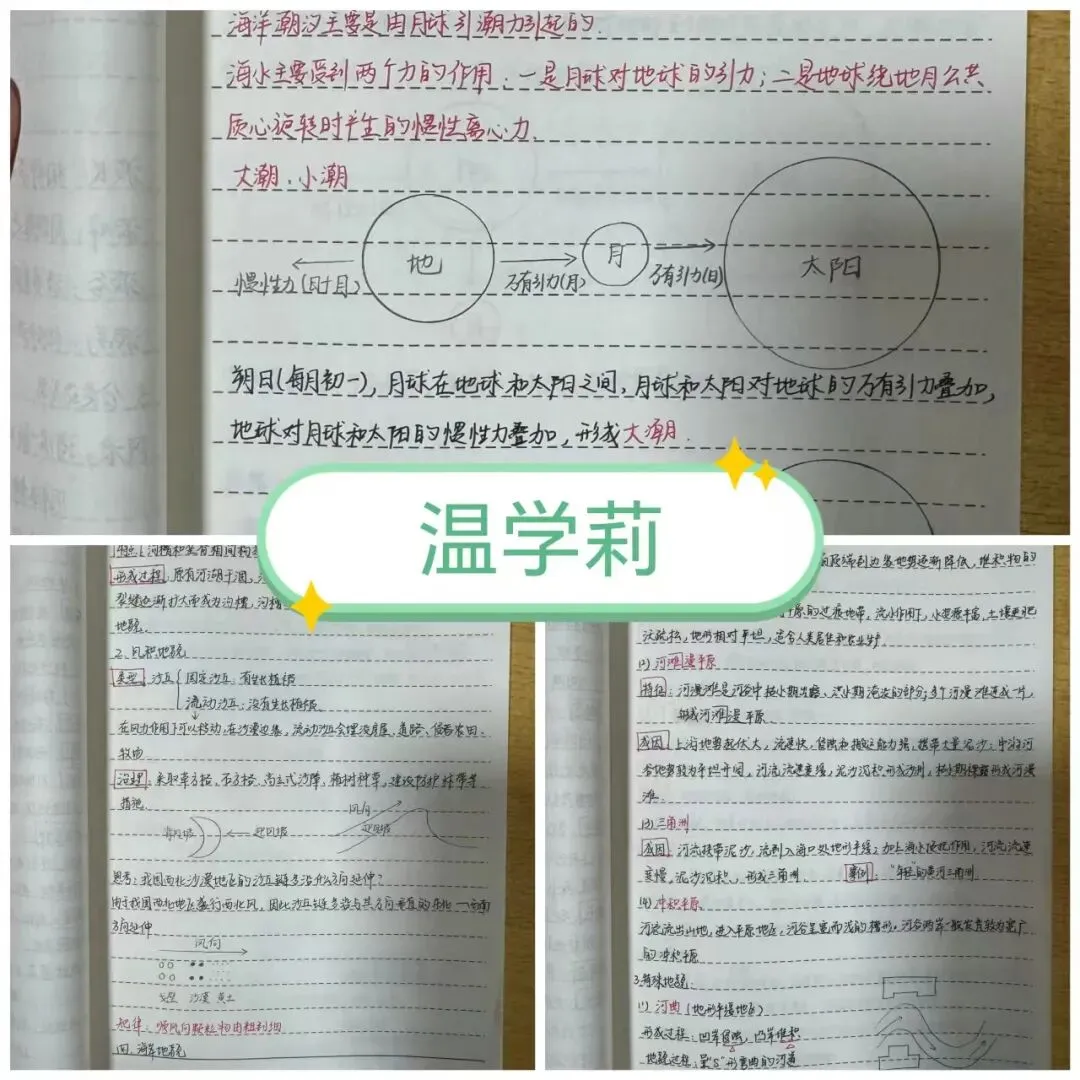 海洋潮汐主要是由月球引潮力引起的.
海水主要受到两个力的作用:一是月球对地球的引力;二是地球绕地月公共
质心旋转时产生的惯性离心力.
大潮、小潮
地
月
太阳
惯性力(日+月)
万有引力(月)
万有引力(日)
朔日(每月初一),月球在地球和太阳之间,月球和太阳对地球的万有引力叠加,
地球对月球和太阳的惯性力叠加,形成大潮.
温学莉
形成过程:原有河湖干涸,
裂缝逐渐扩大而成为沟槽,沟槽
地貌.
2、风积地貌
类型:沙丘
固定沙丘:有生长植被
流动沙丘:没有生长植被
在风力作用下可以移动,在沙漠边缘,流动沙丘会埋没房屋、道路、侵吞农田、
牧场
治理:采取草方格、石方格、高立式沙障,植树种草,建设防护林带等
措施.
背风坡
迎风坡
风向
迎风坡
思考:我国西北沙漠地区的沙丘链多沿什么方向延伸?
由于我国西北地区盛行西北风,因此沙丘链多沿与其方向垂直的东北—西南
方向延伸
风向
戈壁 沙漠 黄土
规律:顺风向颗粒物由粗到细
四、海岸地貌
到边缘地势逐渐降低,堆积物的
平原的过渡地带,流水作用下,水资源丰富,土壤更肥
沃疏松,地形相对平坦,适合人类居住和农业生产.
(2) 河漫滩平原
特征:河漫滩是河谷中枯水期出露,洪水期淹没的部分,多个河漫滩连成一片,
形成河漫滩平原
成因:上游地势起伏大,流速快,侵蚀和搬运能力强,携带大量泥沙;中游河
谷地势较为平坦开阔,河流流速变缓,泥沙沉积形成沙洲,枯水期裸露形成河漫
滩.
(3) 三角洲
成因:河流携带泥沙,流到入海口处地形平缓,加上海水顶托作用,河流流速
变慢,泥沙沉积,形成三角洲.
案例:"年轻"的黄河三角洲
(4) 冲积平原
河流流出山地,进入平原地区,河谷呈宽而浅的槽形,河谷两岸一般发育较为宽广
的冲积平原
3.特殊地貌:
(1) 河曲 (地形平缓地区)
形成过程:凹岸侵蚀,凸岸堆积
地貌过程:呈"S"形弯曲的河道